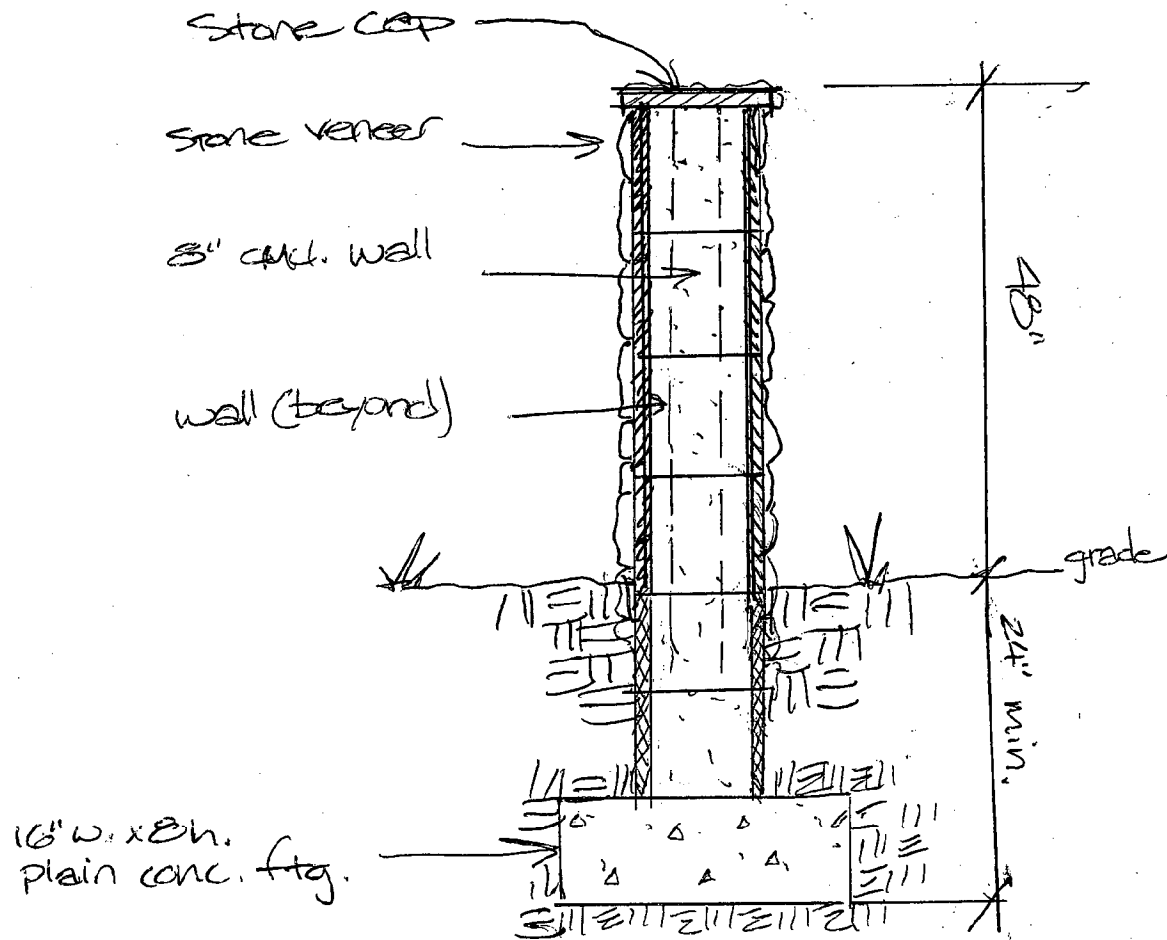 Stone Cap
Stone veneer
8" cmu. wall
wall (beyond)
48"
grade
24" min.
16" w. x 8 h.
plain conc. ftg.